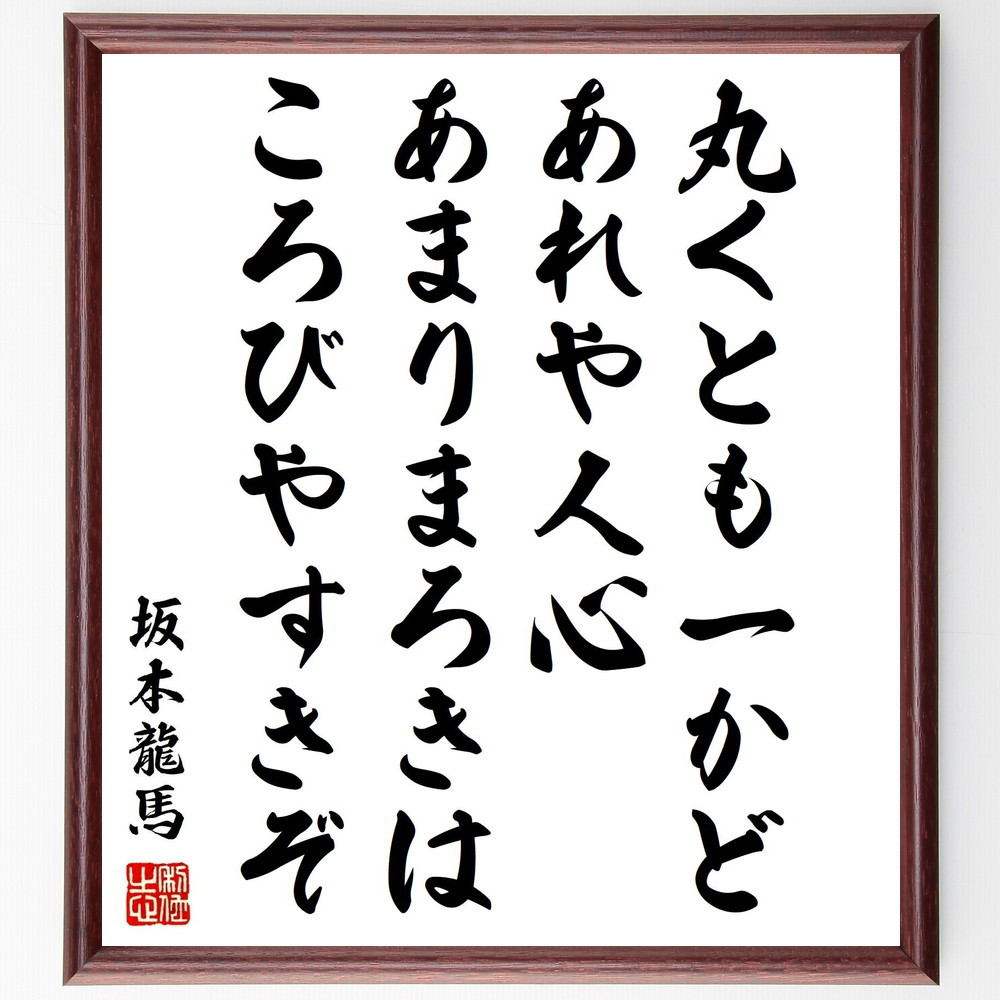 丸くとも一かど
あれや人心
あまりまろきは
ころびやすきぞ
坂本龍馬